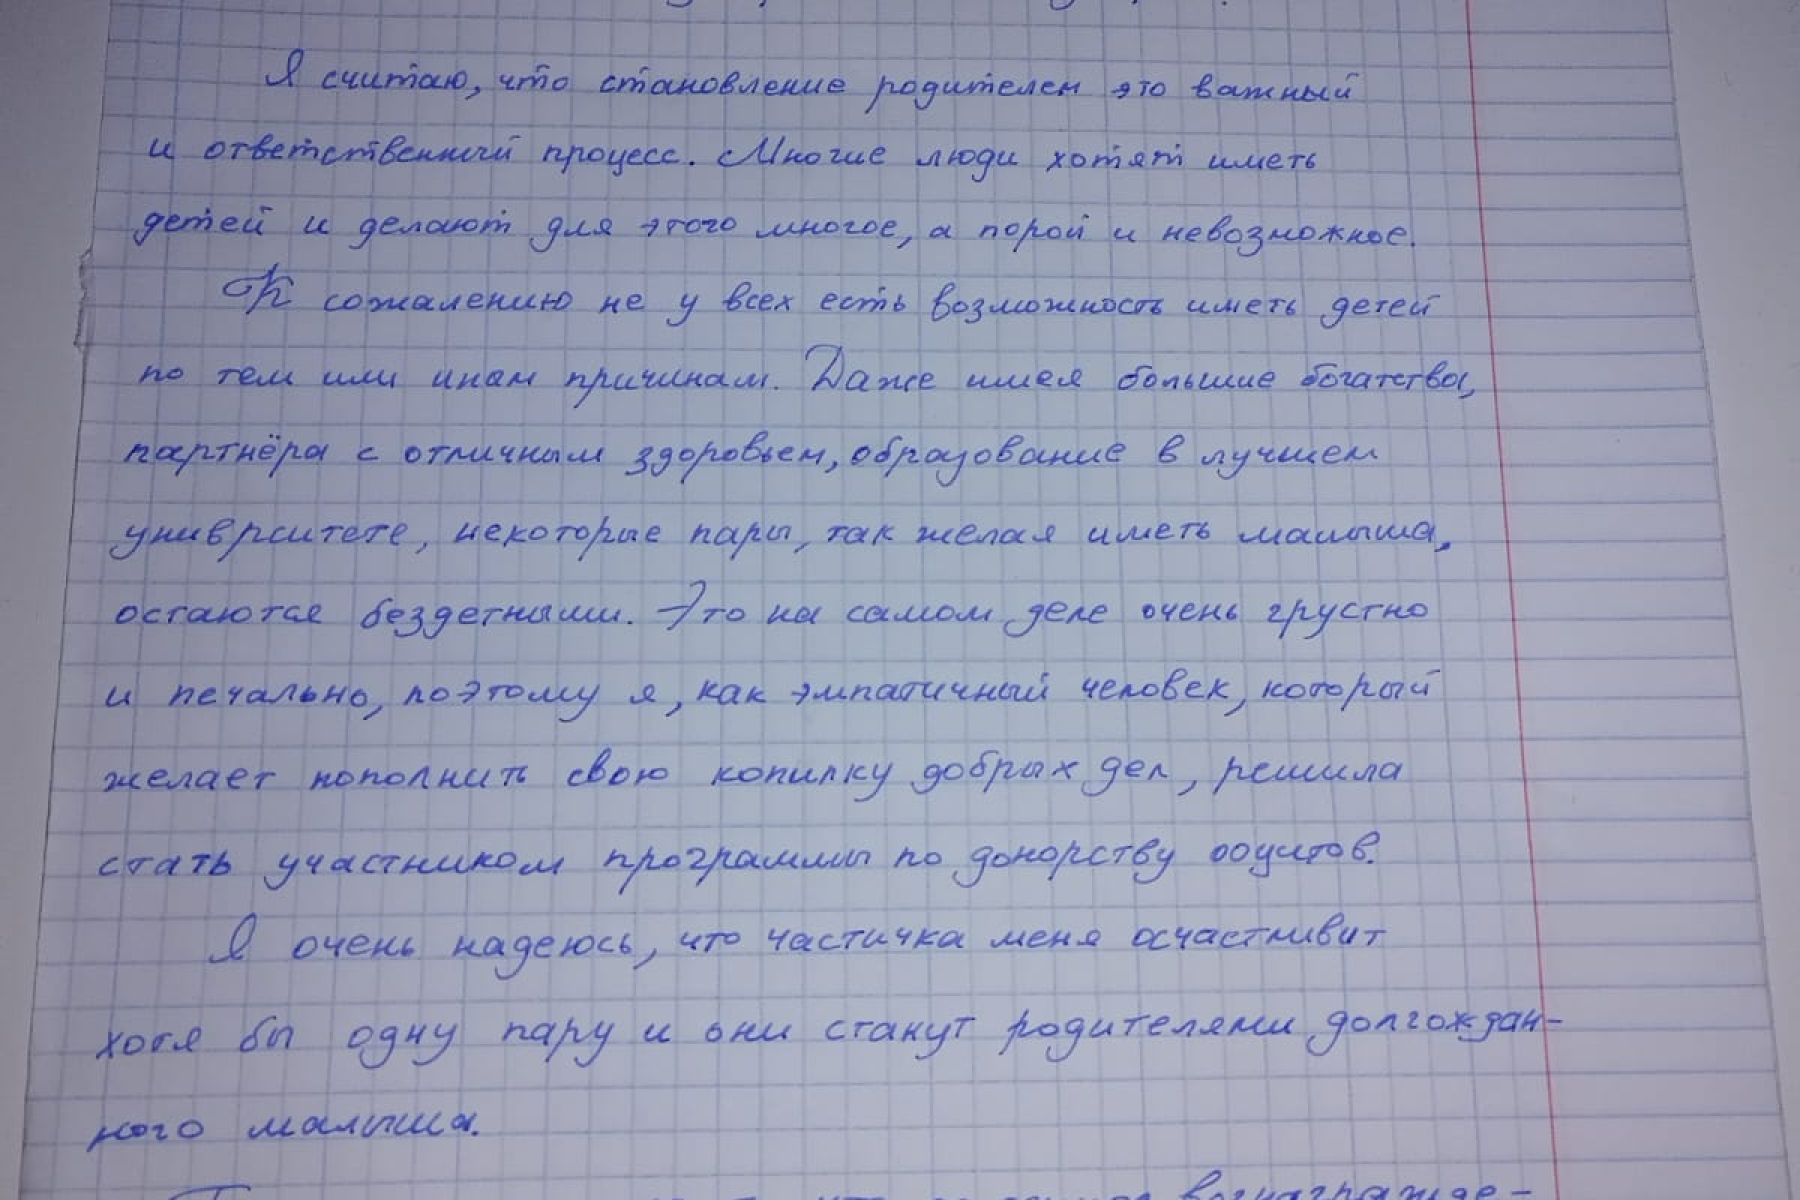 Я считаю, что становление родителем это важный
и ответственный процесс. Многие люди хотят иметь
детей и делают для этого многое, а порой и невозможное.
К сожалению не у всех есть возможность иметь детей
по тем или иным причинам. Даже имея большие богатства,
партнёра с отличным здоровьем, образование в лучшем
университете, некоторые пары, так желая иметь малыша,
остаются бездетными. Это на самом деле очень грустно
и печально, поэтому я, как эмпатичный человек, который
желает пополнить свою копилку добрых дел, решила
стать участником программы по донорству ооцитов.
Я очень надеюсь, что частичка меня осчастливит
хотя бы одну пару и они станут родителями долгождан-
ного малыша.